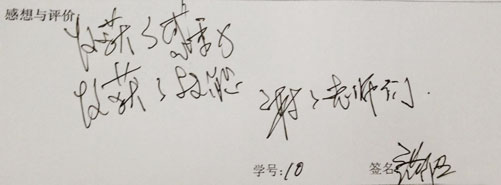 感想与评价
收获了感受
收获了反思
谢了老师们.
学号:10 签名